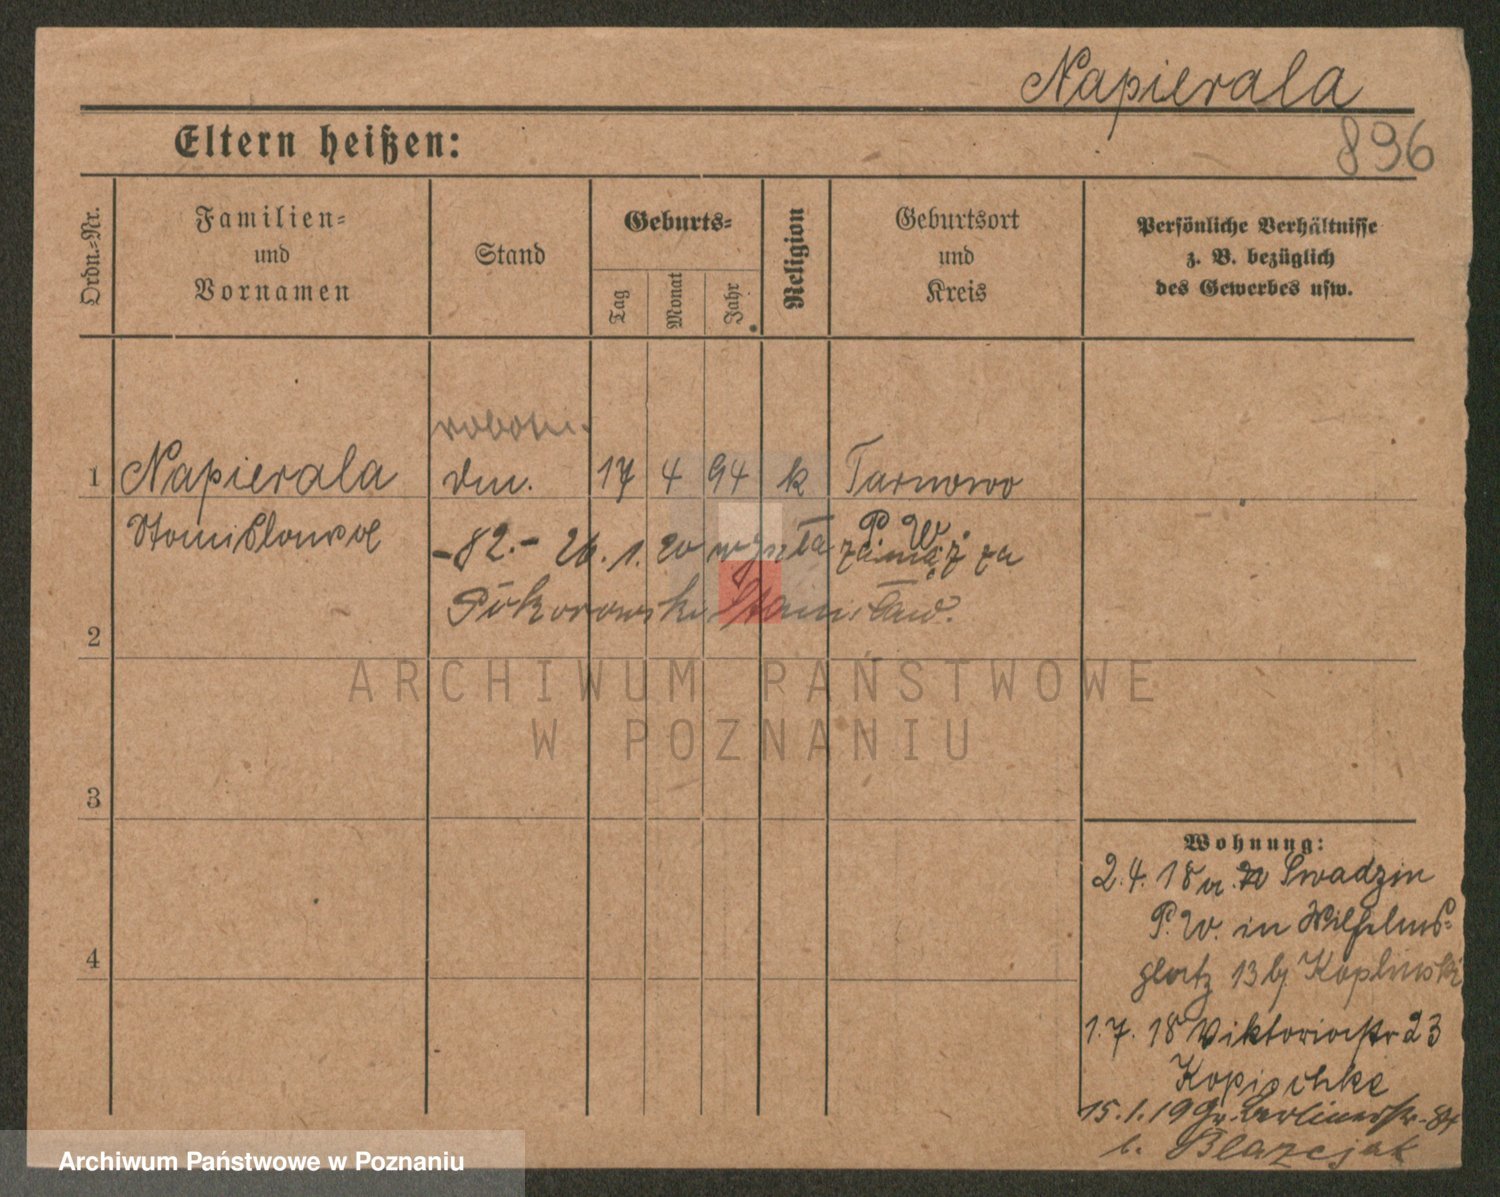 Napierala
896
Eltern heißen:
Ordn.-Nr.
Familien-
und
Vornamen
Stand
Geburts-
Tag
Monat
Jahr
Religion
Geburtsort
und
Kreis
Persönliche Verhältnisse
z. B. bezüglich
des Gewerbes usw.
robotn.
1 Napierala dm. 17 4 94 k Tarnowo
Stanislawa P. W.
-82.- 26.1.20 wyszła zamąż za
2 Stanisław.
3
4
Wohnung:
2.4.18 v. Swadzin
P.W. in Wilhelms-
platz 13 bj Koplinski
1.7.18 Viktoriastr 23
Kopischke
15.1.19 Gr. Berlinerstr. 84
b. Blazejak
ARCHIWUM PAŃSTWOWE
W POZNANIU
Archiwum Państwowe w Poznaniu